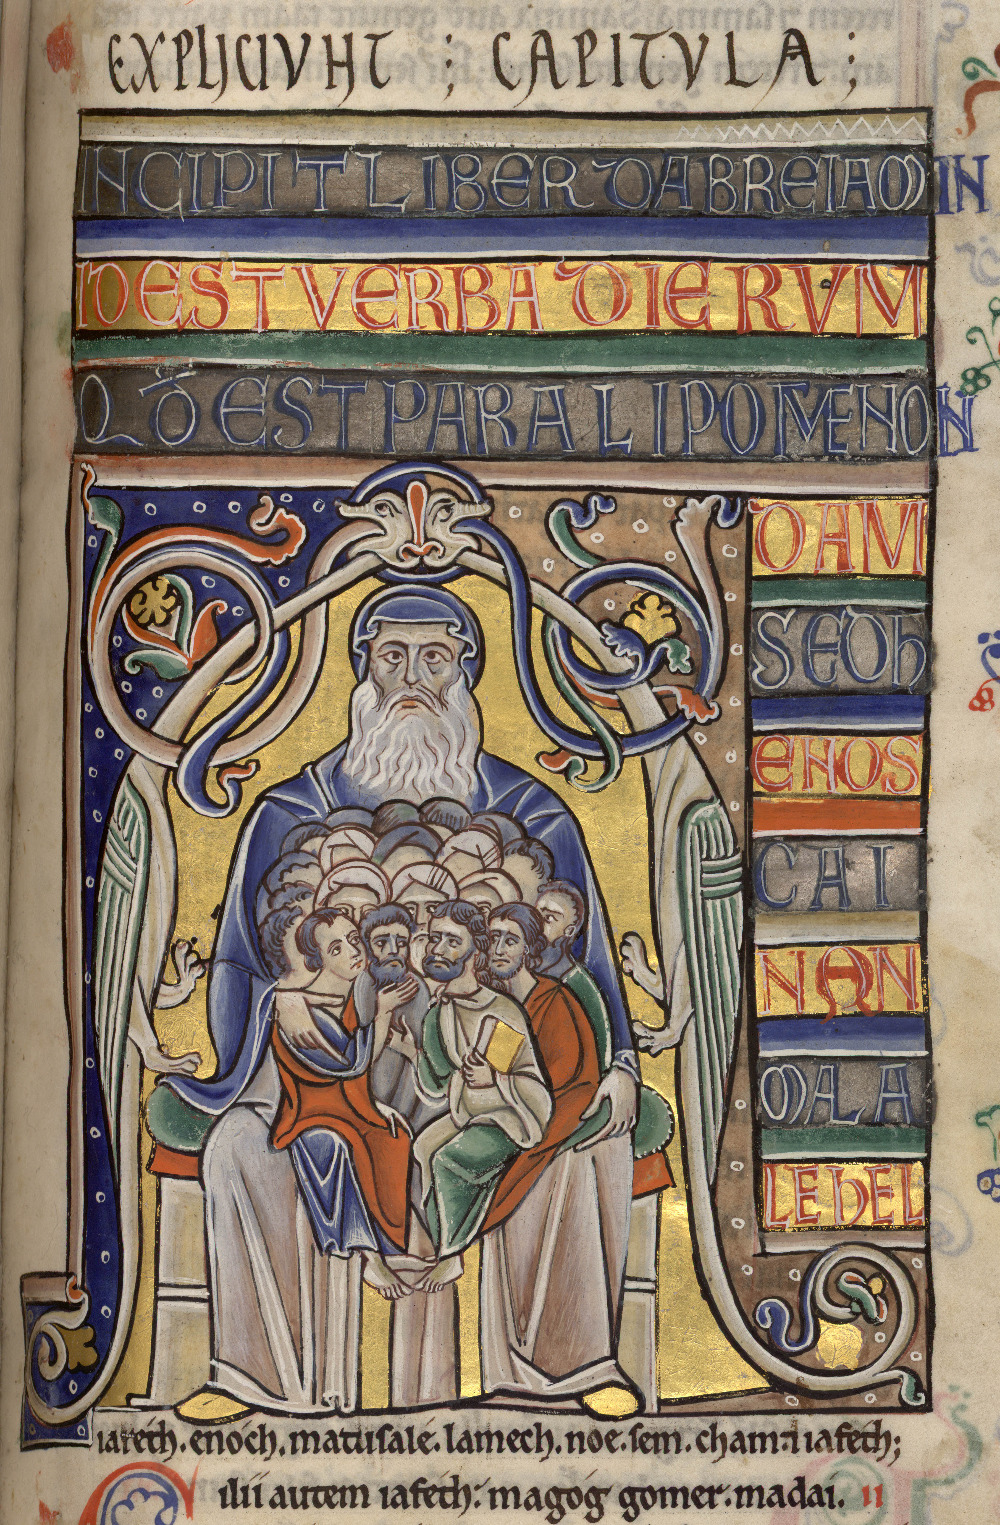 EXPLICIVNT : CAPITVLA ;
INCIPIT LIBER DABREIAMIN
IDEST VERBA DIERVM
QD EST PARALIPOMENON
ADAM
SEDh
ENOS
CAI
NAN
MALA
LEhEL
iareth. enoch. matusale. lamech. noe. sem. cham. ⁊ iafeth;
ilii autem iafeth: magog gomer. madai. II